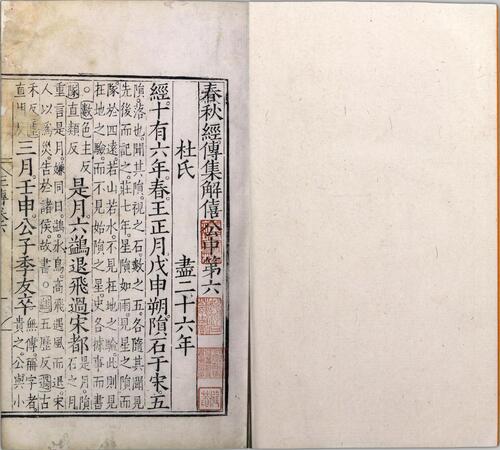 春秋經傳集解僖公中第六
杜氏 盡二十六年
經十有六年春王正月戊申朔隕石于宋五
隕落也聞其隕視之石數之五各隨其聞見
先後而記之莊七年星隕如雨見星之隕而
隊於四遠若山若水不見在地之驗此則見
在地之驗而不見始隕之星史各據事而書
○數色主反
隊直類反
是月六鷁退飛過宋都
是月隕
石之月
重言是月嫌同日鷁水鳥高飛遇風而退宋
人以爲災告於諸侯故書○鷁五歷反過古
禾反
直用反
三月壬申公子季友卒
無傳稱字者
貴之公與小